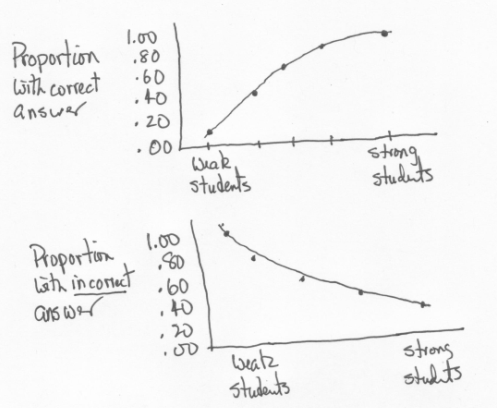 Proportion
with correct
answer
1.00
.80
.60
.40
.20
.00
weak
students
strong
students
Proportion
with incorrect
answer
1.00
.80
.60
.40
.20
.00
weak
students
strong
students